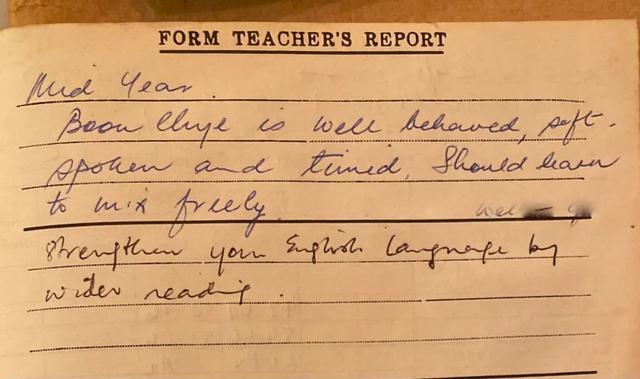 FORM TEACHER'S REPORT
Mid Year.
Boon Chye is well behaved, soft-
spoken and timid. Should learn
to mix freely.
Strengthen your English Language by
wider reading.